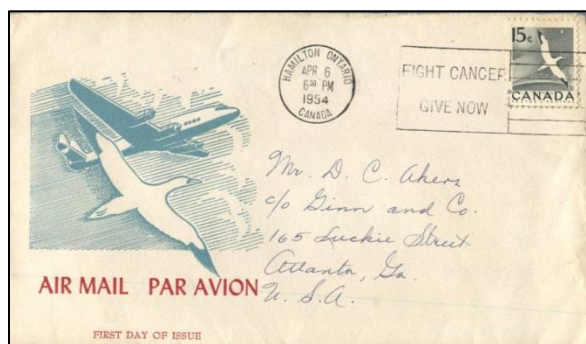 HAMILTON ONTARIO
APR 6
6³⁰ PM
1954
CANADA
FIGHT CANCER
GIVE NOW
15c
CANADA
Mr. D. C. Akers
c/o Ginn and Co.
165 Luckie Street
Atlanta, Ga.
U. S. A.
AIR MAIL PAR AVION
FIRST DAY OF ISSUE